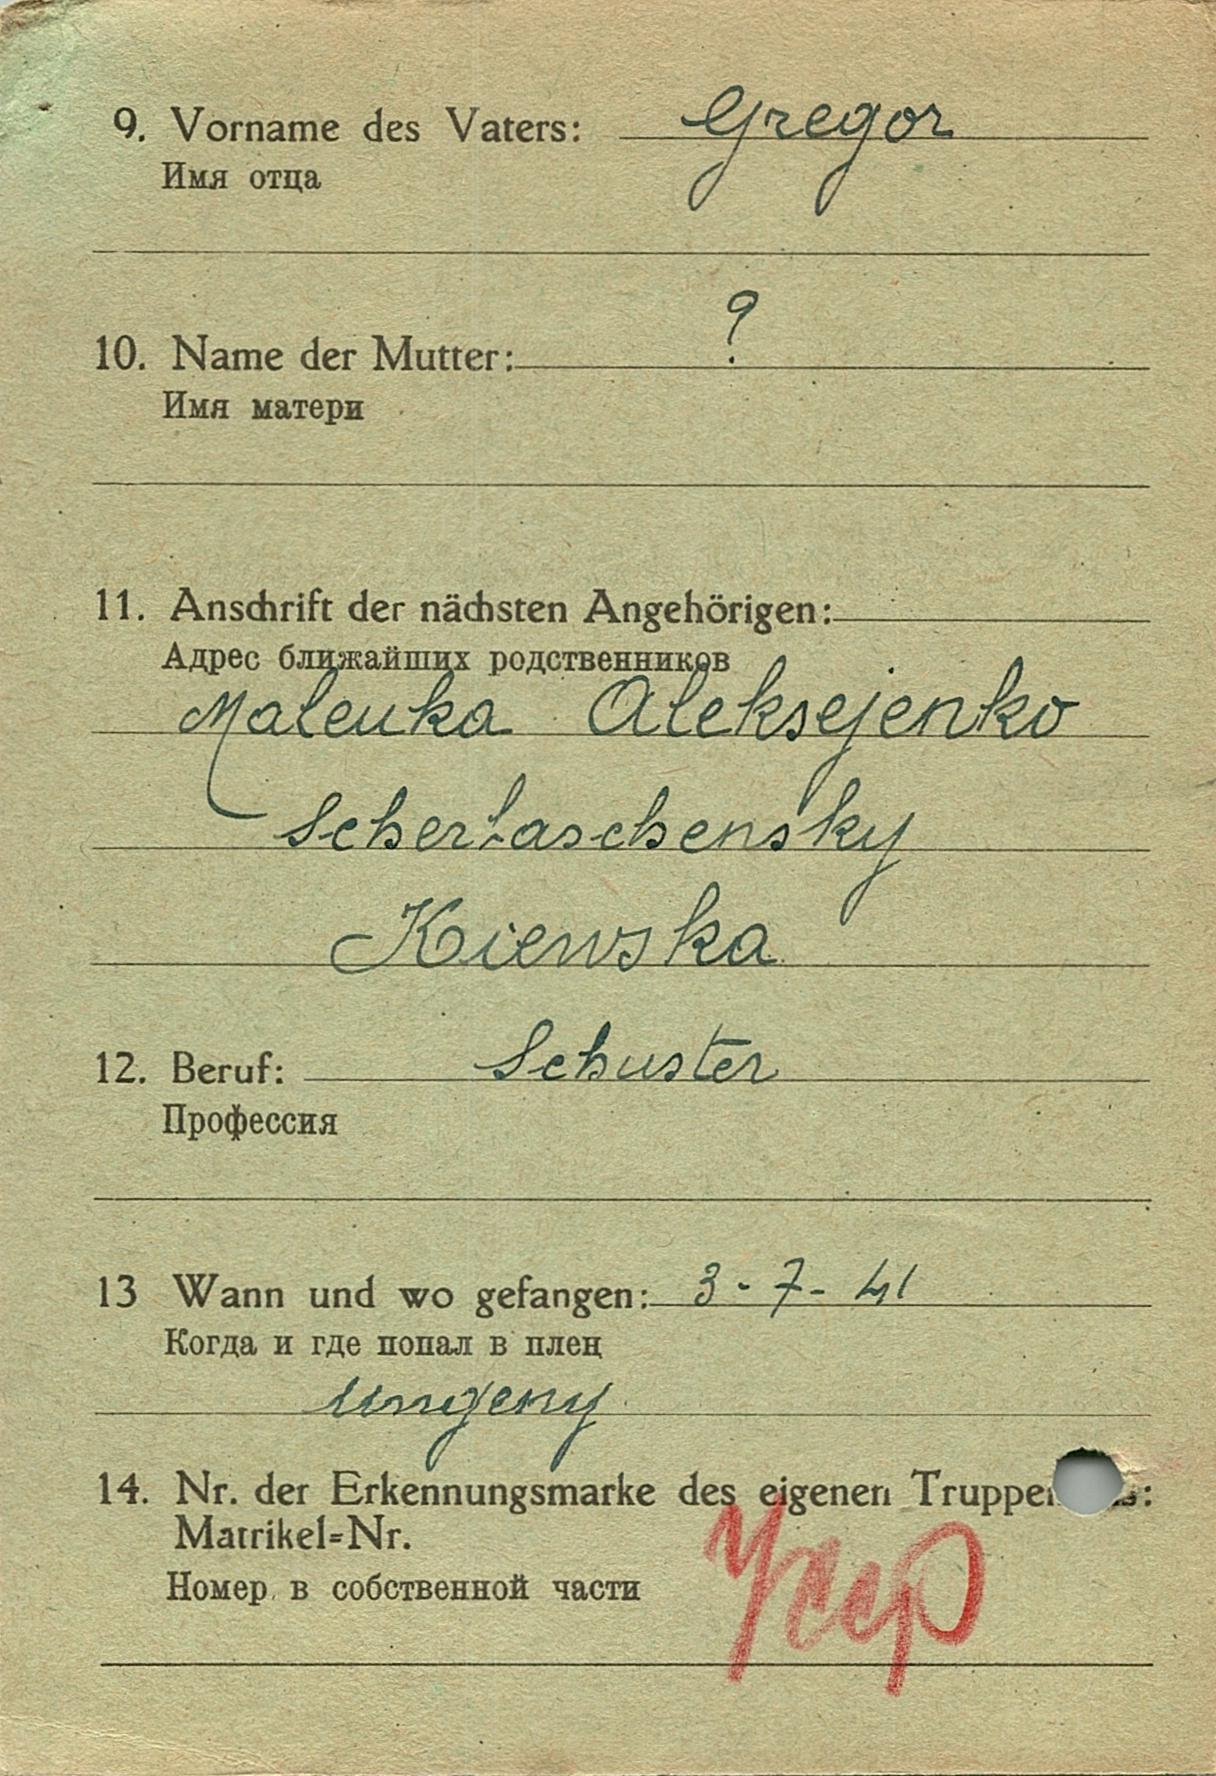 9. Vorname des Vaters: Gregor
Имя отца
?
10. Name der Mutter:
Имя матери
11. Anschrift der nächsten Angehörigen:
Адрес ближайших родственников
Maleuka Aleksejenko
Scherlaschensky
Kiewska
12. Beruf: Schuster
Профессия
13 Wann und wo gefangen: 3-7-41
Когда и где попал в плен
Ungeny
14. Nr. der Erkennungsmarke des eigenen
Matrikel=Nr.
Номер в собственной части
Уссp